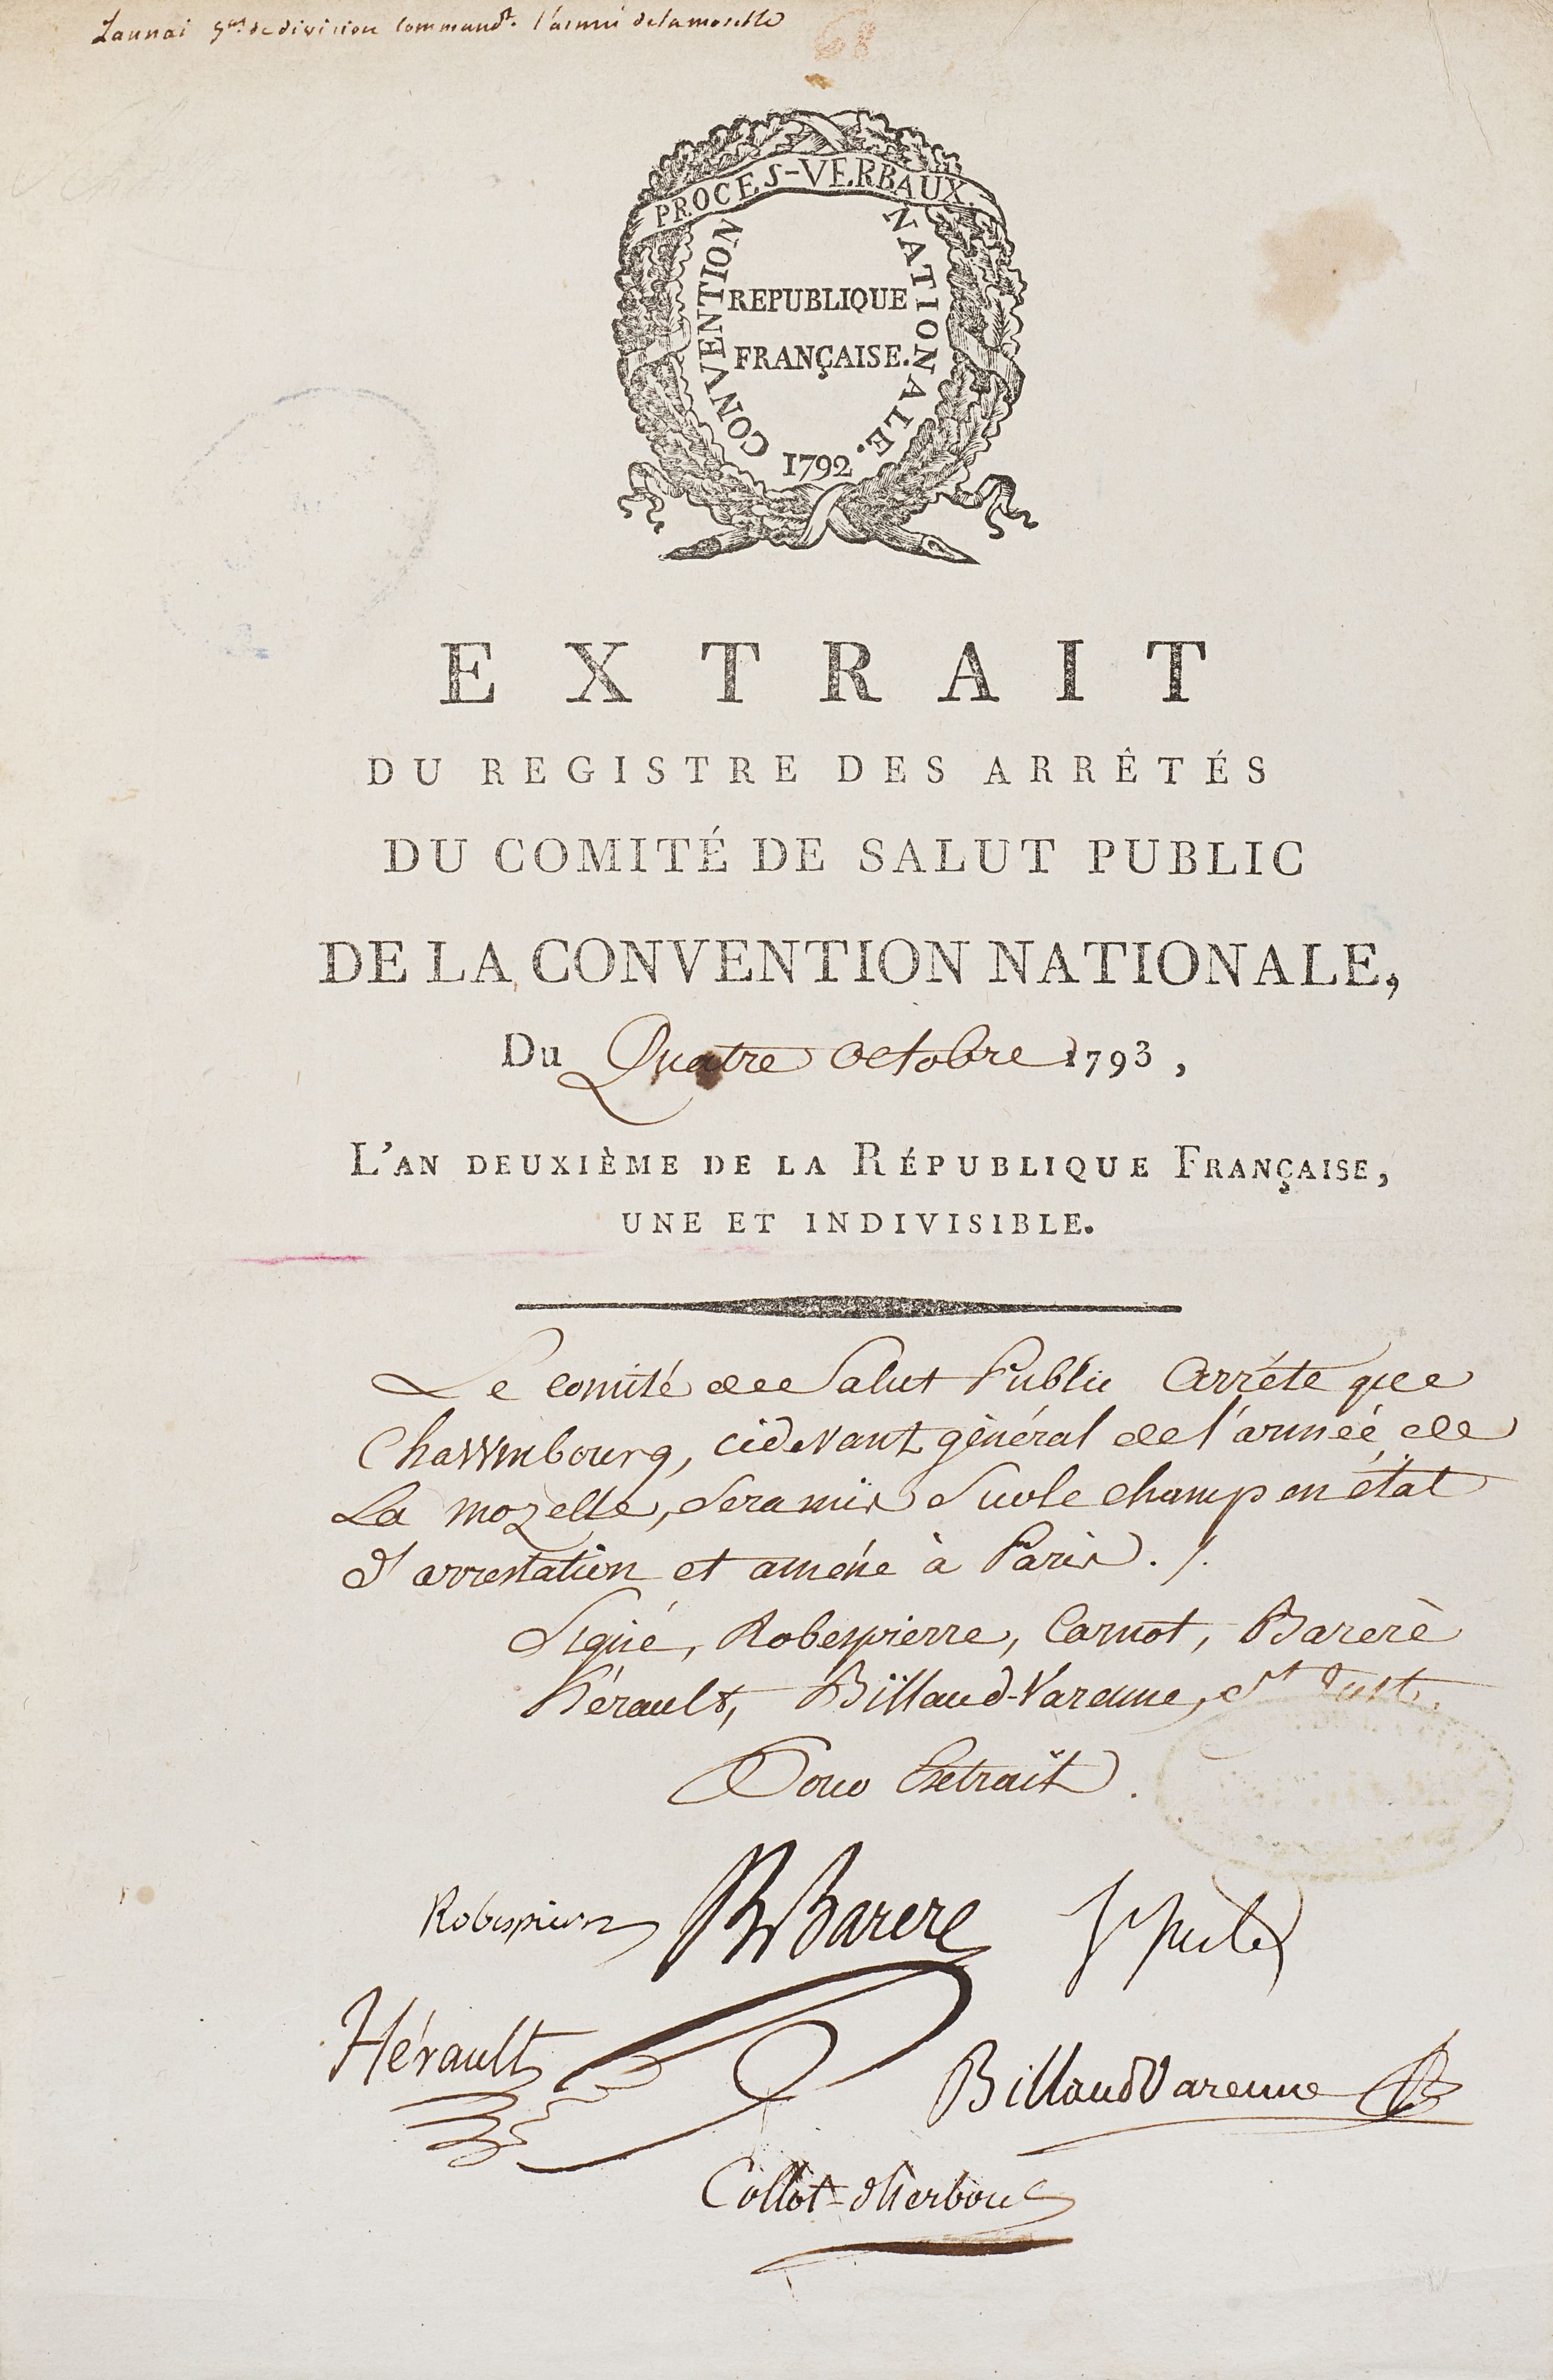 Launai g.al de division command.t l'armée de la moselle
68
PROCES-VERBAUX.
CONVENTION NATIONALE.
REPUBLIQUE
FRANÇAISE.
1792
EXTRAIT
DU REGISTRE DES ARRÊTÉS
DU COMITÉ DE SALUT PUBLIC
DE LA CONVENTION NATIONALE,
Du Quatre Octobre 1793,
L'AN DEUXIÈME DE LA RÉPUBLIQUE FRANÇAISE,
UNE ET INDIVISIBLE.
Le Comité de Salut Public Arrête que
Chawmbourg, cidevant général de l'armée de
La mozelle, sera mis sur le champ en état
d'arrestation et améné à Paris ./.
Signé, Robespierre, Carnot, Barere
Hérault, Billaud-Varenne, St Just.
Pour Extrait.
Robespierre B Barere St Just
Hérault
Billaud Varenne
Collot-d'herbois